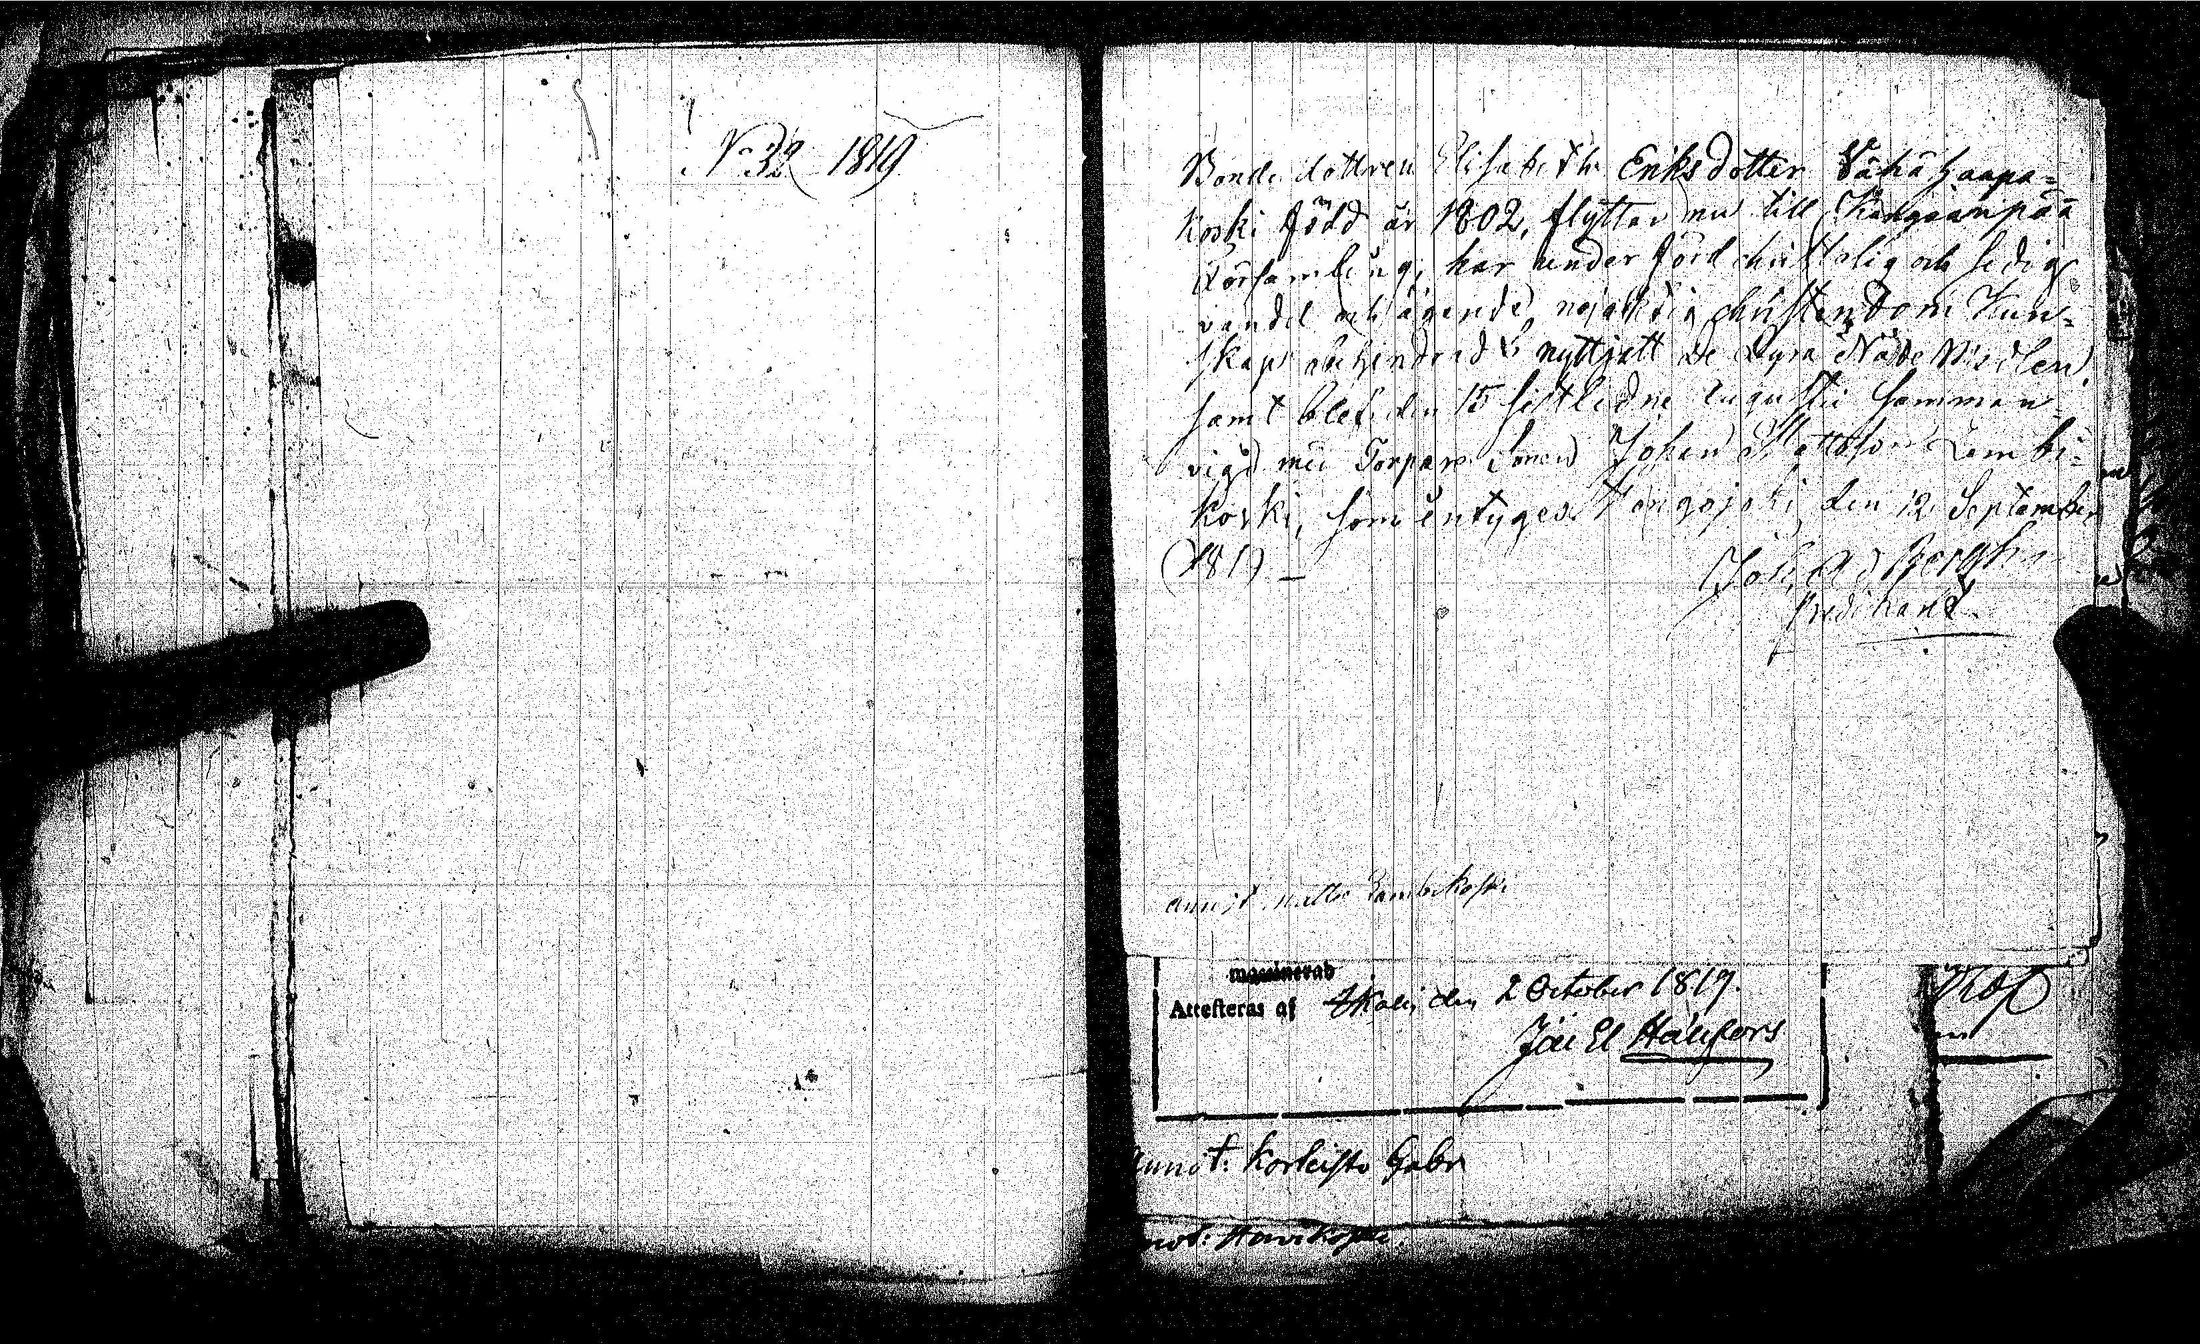 No 32 1819
Bonde dottren Elisabeth Eriksdotter Vähä haapa=
koski född år 1802, flyttar nu till Kangaanpää
Församling; har under förd christelig och sedig
vandel och ägende nöjaktig christendom Kun=
skap obehindrad nyttjatt De Dyra Nåde Medlen,
samt blef den 15 sistledne Augustii samman
vigd med Torpare Sonen Johan Mattsson Lambi=
koski, som intygas Hongojoki den 12 September
1819 —
Joh. Ad Bergh
Predikant
annot Lambikoski
Attesteras af Ikalis den 2 October 1819.
Joh El Hällfors
Annot: Korkeisto Gabr
not: